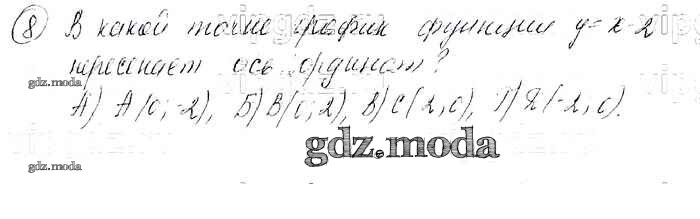 8) В какой точке график функции y=x-2
пересекает ось ординат?
gdz.moda
А) А(0;-2), Б) В(0;2), В) С(2;0), Г) Д(-2;0).
gdz.moda
gdz.moda